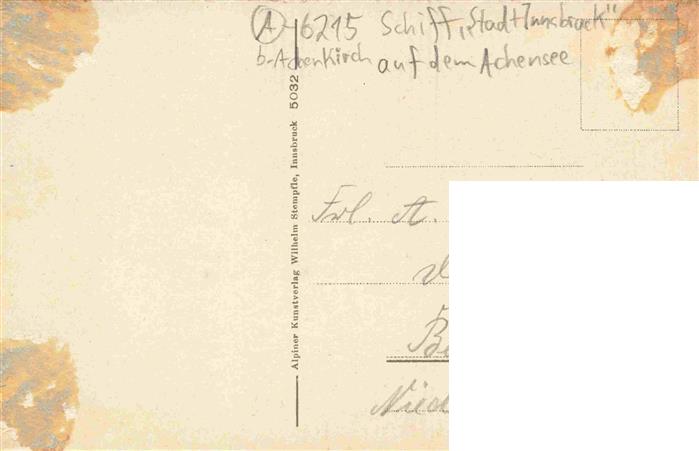 (A) - 6215 Schiff „Stadt Innsbruck“
b. Achenkirch auf dem Achensee
Alpiner Kunstverlag Wilhelm Stempfle, Innsbruck 5032
Frl. A.